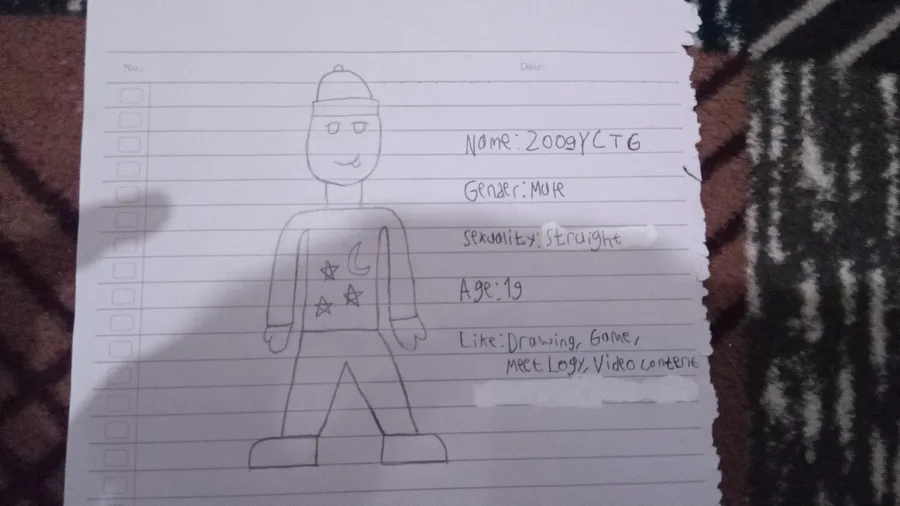 No.
Date
Name: 2009YCTG
Gender: Male
Sexuality: Straight
Age: 19
Like: Drawing, Game,
Meet Logy, Video content